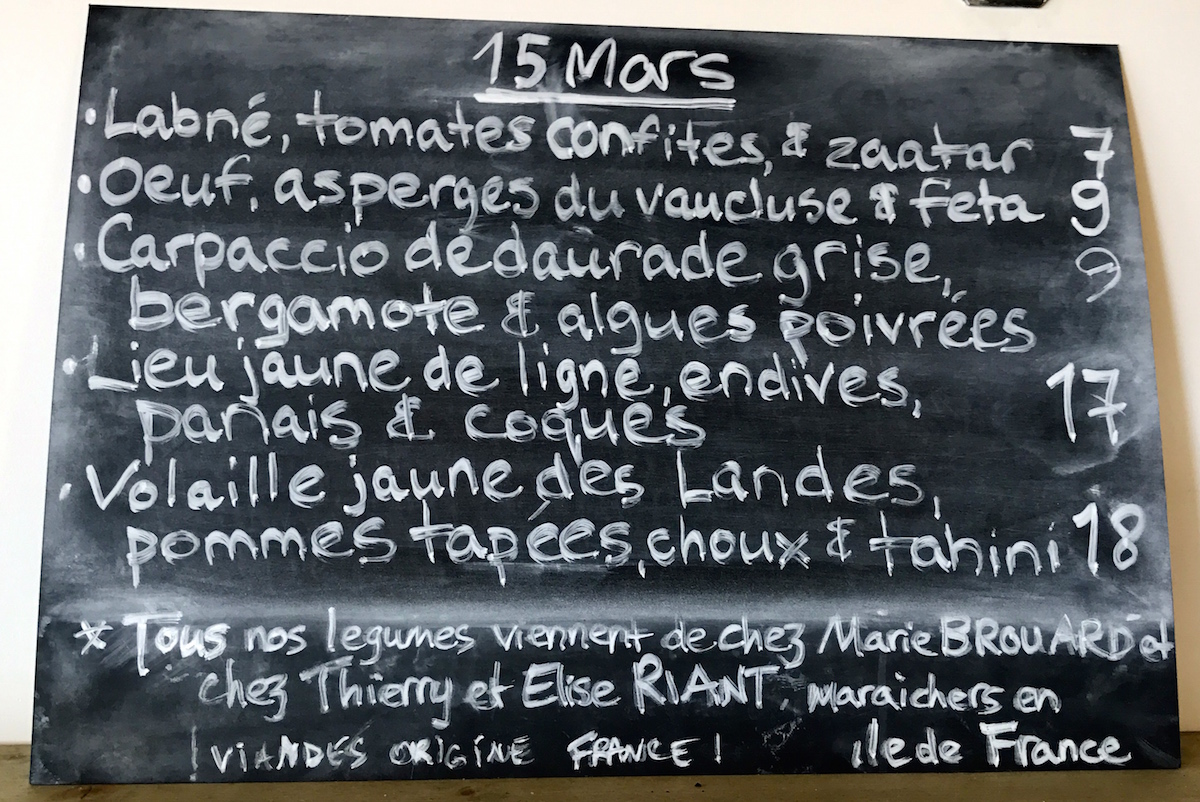 15 Mars
• Labné, tomates confites, & zaatar 7
• Oeuf, asperges du vaucluse & feta 9
• Carpaccio de daurade grise, 9
bergamote & algues poivrées
• Lieu jaune de ligne, endives, 17
panais & coques
• Volaille jaune des Landes,
pommes tapées, choux & tahini 18
* Tous nos legumes viennent de chez Marie BROUARD et
chez Thierry et Elise RIANT, maraichers en
! VIANDES ORIGINE FRANCE ! ile de France